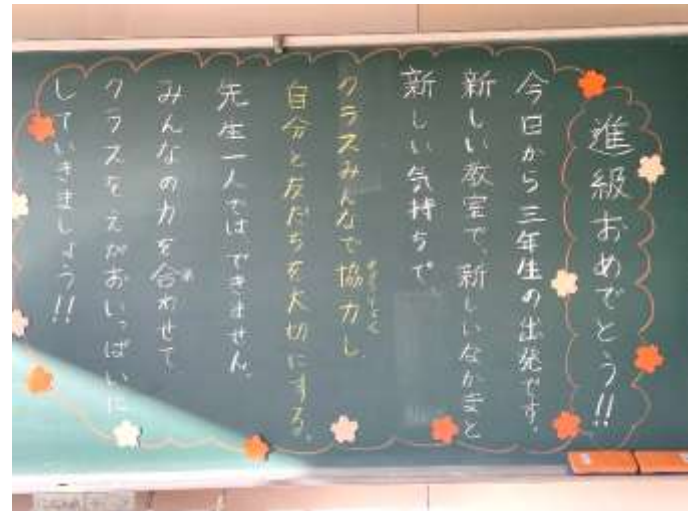 進級おめでとう!!
今日から三年生の出発です。
新しい教室で、新しいなかまと
新しい気持ちで
クラスみんなで協力し、
きょうりょく
自分と友だちを大切にする。
先生一人では、できません。
みんなの力を合わせて
クラスをえがおいっぱいに
していきましょう!!